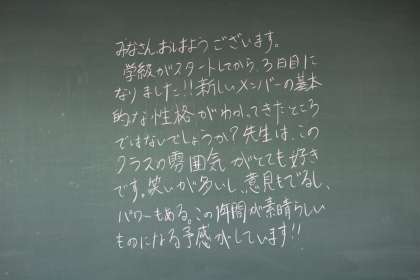 みなさん、おはようございます。
学級がスタートしてから、3日目に
なりました!!新しいメンバーの基本
的な性格がわかってきたところ
ではないでしょうか?先生は、この
クラスの雰囲気がとても好き
です。笑いが多いし、意見もでるし、
パワーもある。この1年間が素晴らしい
ものになる予感がしています!!